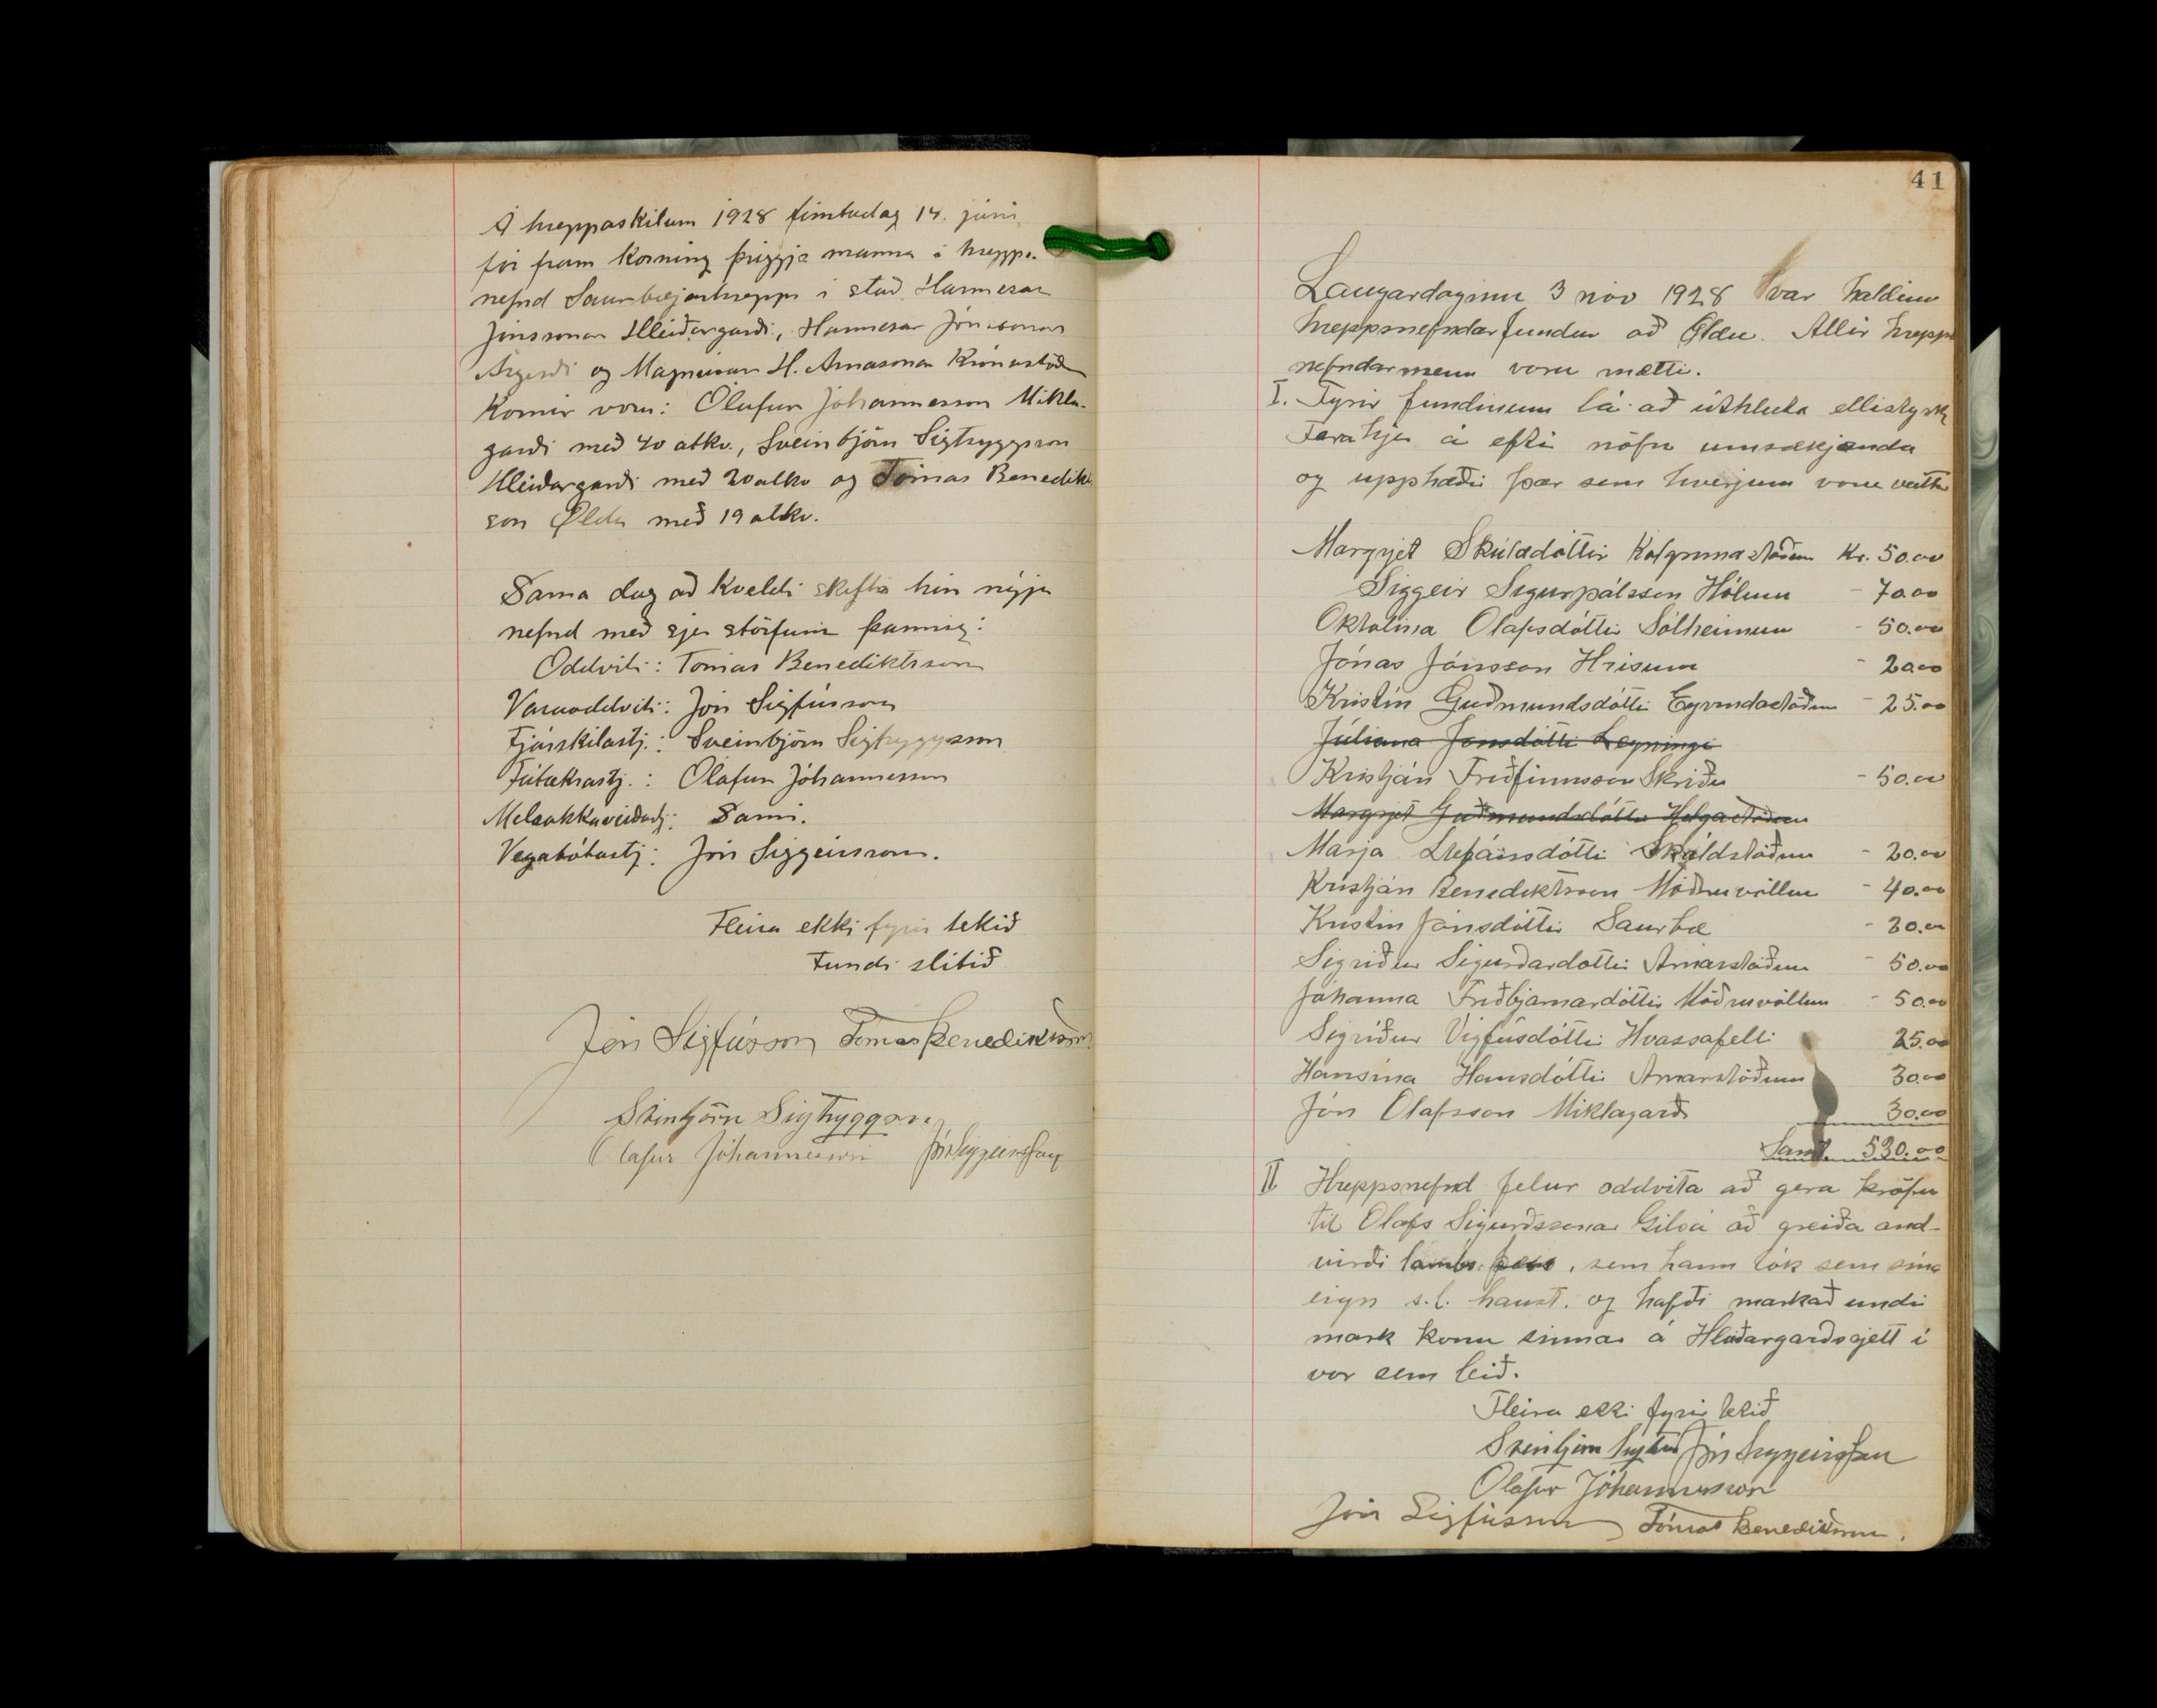 Á hreppaskilum 1928 fimtudag 14. júní
fór fram kosning þriggja manna í hrepps-
nefnd Saurbæjarhrepps í stað Hannesar
Jónssonar Hleiðargarði, Hannesar Jónssonar
Árgerði og Magnúsar H. Árnasonar Krónustöðum
Kosnir voru: Ólafur Jóhannesson Mikla-
garði með 40 atkv., Sveinbjörn Sigtryggsson
Hleiðargarði með 20 atkv og Tómas Benedikts
son Öldu með 19 atkv.
Sama dag að kveldi skifti hin nýja
nefnd með sjer störfum þannig:
Oddviti: Tómas Benediktsson
Varaoddviti: Jón Sigfússon
Fjárskilastj.: Sveinbjörn Sigtryggsson
Fátækrastj.: Ólafur Jóhannesson
Melrakkaveiðastj: Sami.
Vegabótastj: Jón Siggeirsson.
Fleira ekki fyrir tekið
Fundi slitið
Jón Sigfússon Tómas Benediktsson
Sveinbjörn Sigtryggsson
Ólafur Jóhannesson Jón Siggeirsson
41
Laugardaginn 3 nóv 1928 var haldinn
hreppsnefndarfundur að Öldu. Allir hrepps
nefndarmenn voru mætti.
I. Fyrir fundinum lá að úthluta ellistyrk
Fara hjer á eftir nöfn umsækjenda
og upphæðir þær sem hverjum voru veittar
Margrjet Skúladóttir Kolgrímastöðum Kr. 50.00
Siggeir Sigurpálsson Hólum - 70.00
Oktalína Ólafsdóttir Sólheimum - 50.00
Jónas Jónsson Hrísum - 20.00
Kristín Guðmundsdóttir Eyvindastöðum - 25.00
Júlíana Jónsdóttir Leyningi
Kristján Friðfinnsson Skriðu - 50.00
Margrjet Guðmundsdóttir Helgastöðum
María Stefánsdóttir Skáldstöðum - 20.00
Kristján Benediktsson Möðruvöllum - 40.00
Kristín Jónsdóttir Saurbæ - 20.00
Sigríður Sigurðardóttir Arnarstöðum - 50.00
Jóhanna Friðbjarnardóttir Möðruvöllum - 50.00
Sigríður Vigfúsdóttir Hvassafelli 25.00
Hansína Hansdóttir Arnarstöðum 30.00
Jón Ólafsson Miklagarði 30.00
Samt. 530.00
II Hreppsnefnd felur oddvita að gera kröfu
til Ólafs Sigurðssonar Gilsá að greiða and-
virði lambs þess, sem hann tók sem sína
eign s.l. haust, og hafði markað undir
mark konu sinnar á Hleiðargarðsrjett í
vor sem leið.
Fleira ekki fyrir tekið
Sveinbjörn Sigtr Jón Siggeirsson
Ólafur Jóhannesson
Jón Sigfússon Tómas Benediktsson.